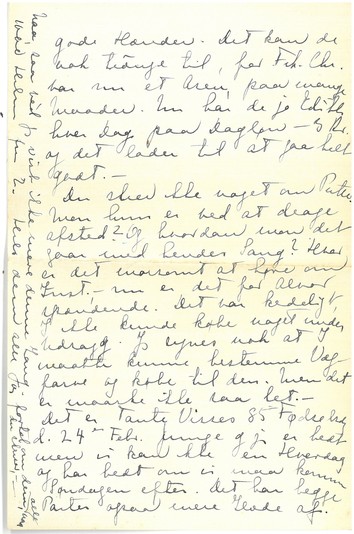 gode Hænder. Det kan de
nok trænge til, for Frk. Chr.
var nu et Asen, paa mange
Maader. Nu har de jo Edith
hver Dag paa Dagløn – 5 Kr.
og det lader til at gaa helt
godt. –
Du skrev ikke noget om Putte.
Men hun er ved at drage
afsted? Og hvordan mon det
gaar med hendes Sang? Hvor
er det morsomt at høre om
– nu er det for Alvor
spændende. Det var kedeligt,
I ikke kunde købe noget under
Udsalg. Jeg synes nok at I
maatte kunne bestemme Væg-
farve og købe til den. Men det
er maaske ikke saa let. –
Det er Tante Visses 85 Fødselsdag
d. 24de Febr. Junge og jeg er bedt
men vi kan ikke en Hverdag
og har bedt om vi maa komme
Søndagen efter. Det har begge
Parter ogsaa mere Glæde af.
Naa, saa vil jeg vist ikke mere denne Gang.